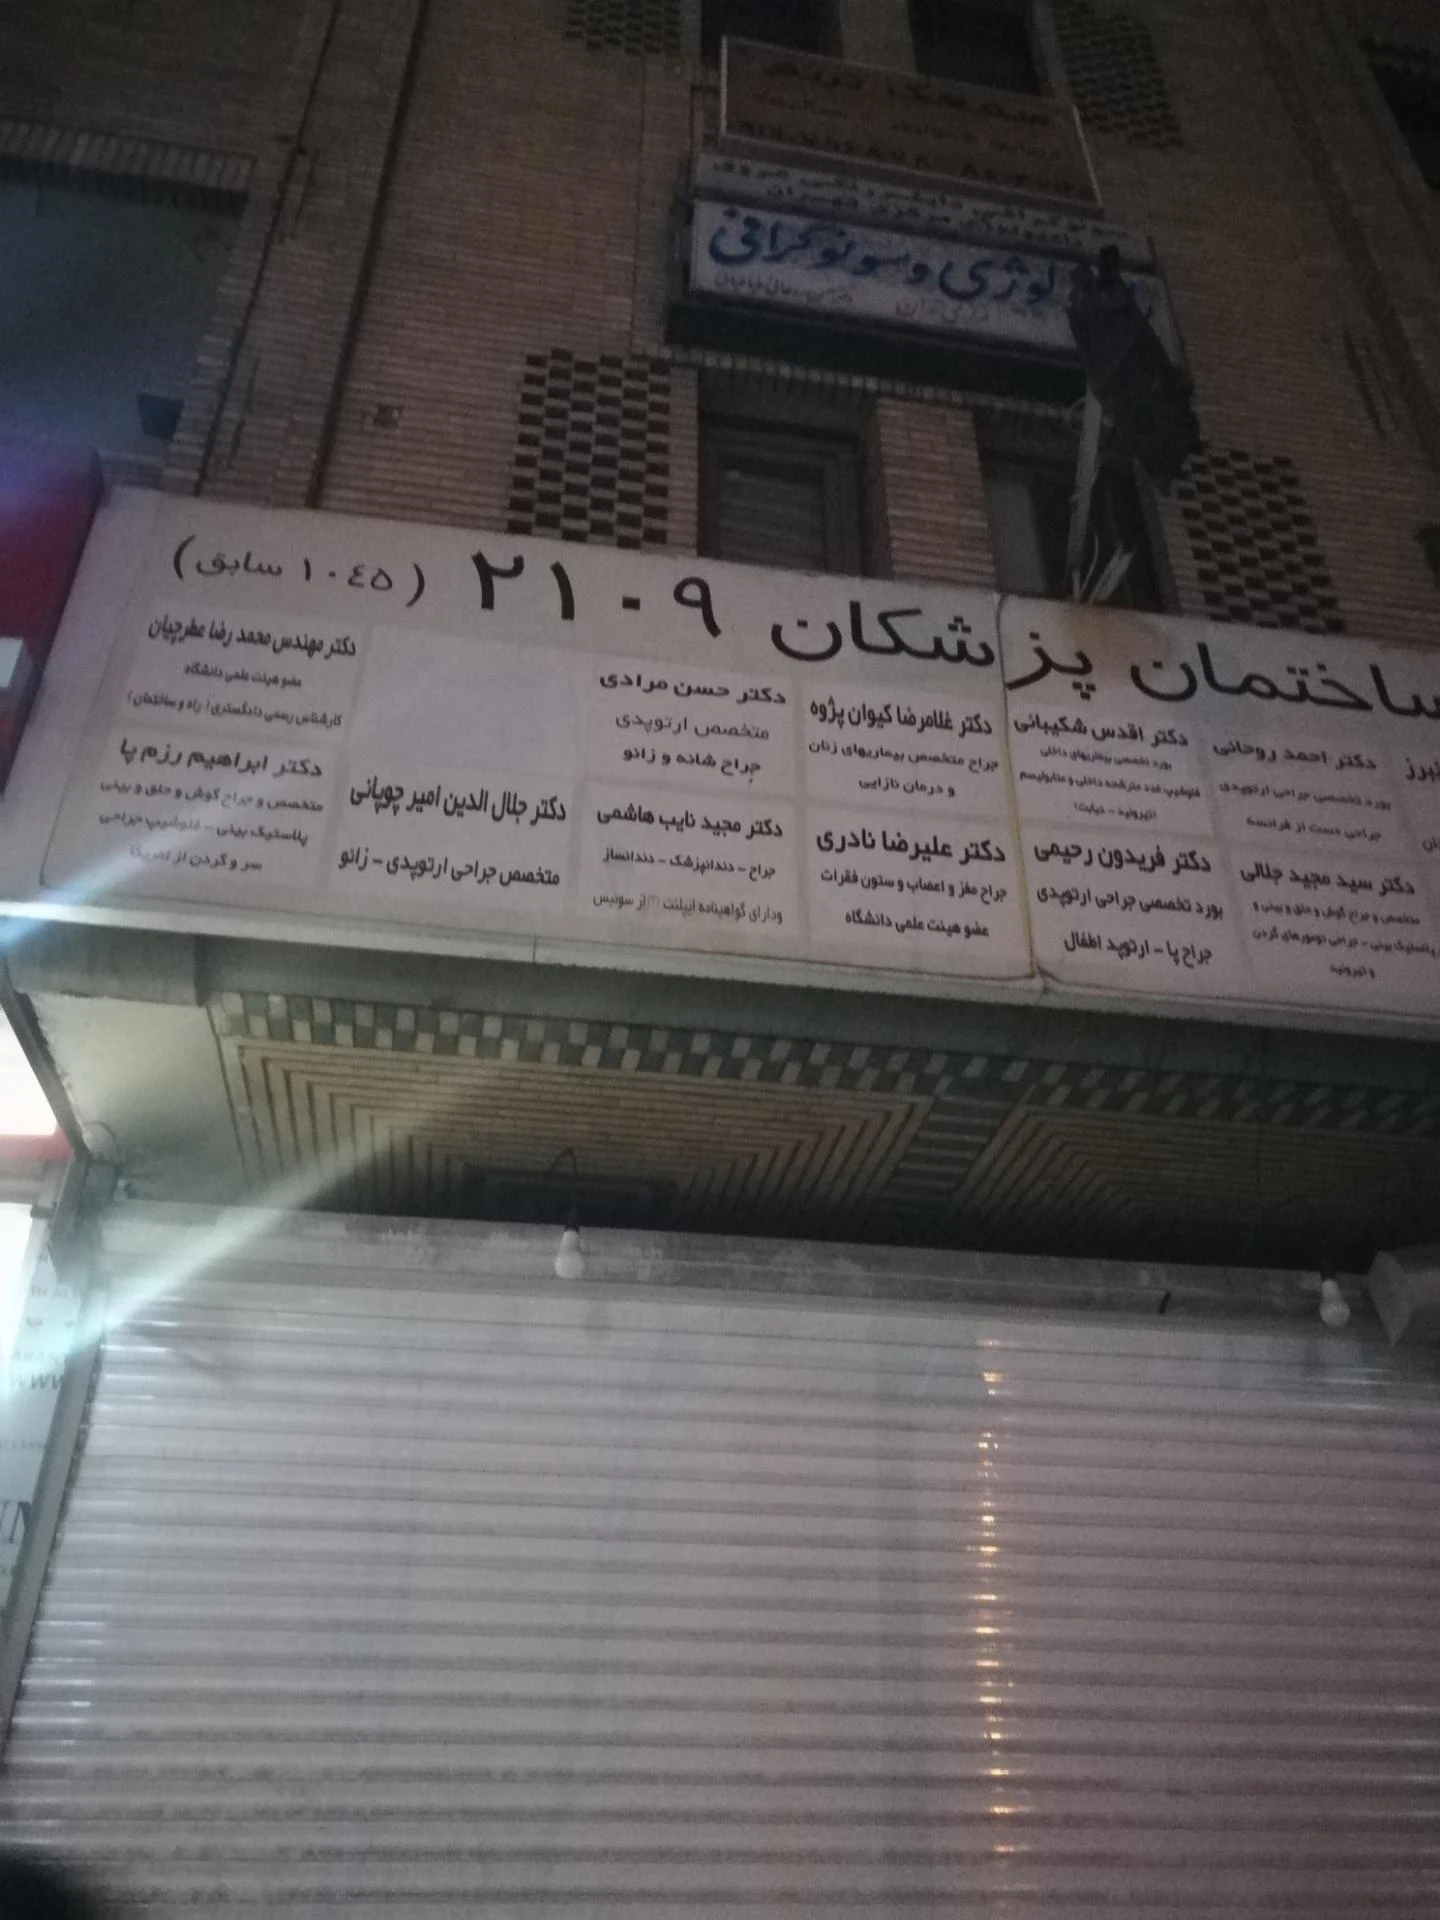 رادیولوژی و سونوگرافی
ساختمان پزشکان ۲۱۰۹ (۱۰۴۵ سابق)
دکتر احمد روحانی
بورد تخصصی جراحی ارتوپدی
جراحی دست از فرانسه
دکتر اقدس شکیبائی
بورد تخصصی بیماریهای داخلی
فلوشیپ غدد مترشحه داخلی و متابولیسم
(تیروئید - دیابت)
دکتر غلامرضا کیوان پژوه
جراح متخصص بیماریهای زنان
و درمان نازایی
دکتر حسن مرادی
متخصص ارتوپدی
جراح شانه و زانو
دکتر مهندس محمد رضا عطرچیان
عضو هیئت علمی دانشگاه
کارشناس رسمی دادگستری (راه و ساختمان)
دکتر سید مجید جلالی
متخصص و جراح گوش و حلق و بینی و
پلاستیک بینی - جراحی تومورهای گردن
و تیروئید
دکتر فریدون رحیمی
بورد تخصصی جراحی ارتوپدی
جراح پا - ارتوپد اطفال
دکتر علیرضا نادری
جراح مغز و اعصاب و ستون فقرات
عضو هیئت علمی دانشگاه
دکتر مجید نایب هاشمی
جراح - دندانپزشک - دندانساز
ودارای گواهینامه ایپلنت ITI از سوئیس
دکتر جلال الدین امیر چوپانی
متخصص جراحی ارتوپدی - زانو
دکتر ابراهیم رزم پا
متخصص و جراح گوش و حلق و بینی
پلاستیک بینی - فلوشیپ جراحی
سر و گردن از امریکا
WWW